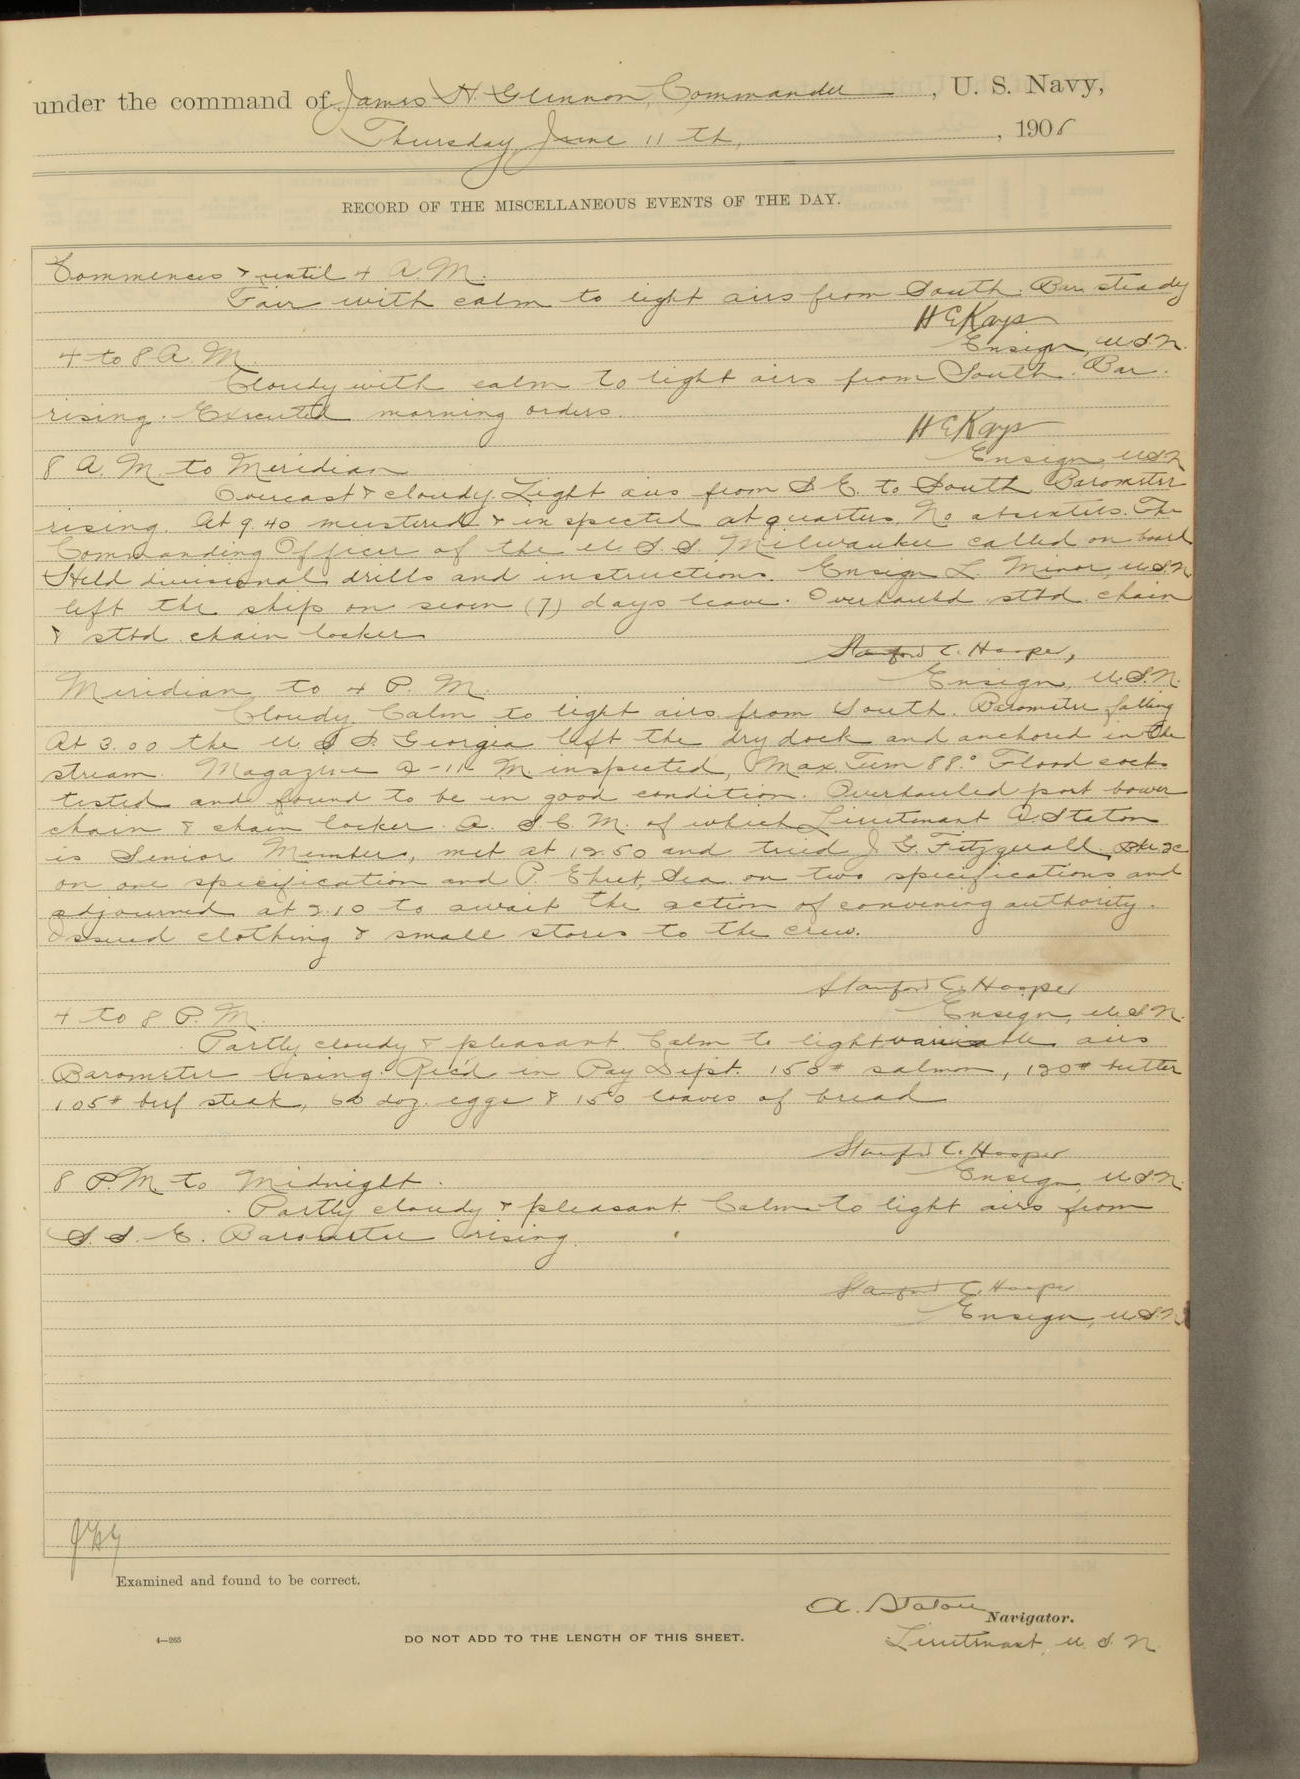 under the command of James H. Glennon, Commander, U. S. Navy,
Thursday June 11th, , 1908
RECORD OF THE MISCELLANEOUS EVENTS OF THE DAY.
Commences & until 4 A.M.
Fair with calm to light airs from South. Bar. steady
H E Kays
Ensign, U.S.N.
4 to 8 A. M.
Cloudy with calm to light airs from South. Bar.
rising. Executed morning orders.
H E Kays
Ensign, U.S.N
8 A. M. to Meridian
Overcast & cloudy. Light airs from S. E. to South Barometer
rising. At 9.40 mustered & inspected at quarters. No absentees. The
Commanding Officer of the U. S. S. Milwaukee called on board
Held divisional drills and instructions. Ensign L. Minor, U.S.N.
left the ship on seven (7) days leave. Overhauled stbd. chain
& stbd. chain locker
Stanford C. Hooper,
Ensign, U.S.N.
Meridian to 4 P. M.
Cloudy. Calm to light airs from South. Barometer falling
At 3.00 the U. S. S. Georgia left the dry dock and anchored in the
stream. Magazine A-11 M inspected, Max. Tem 88.° Flood cocks
tested and found to be in good condition. Overhauled port bower
chain & chain locker. A. S C M. of which Lieutenant A. Staton
is Senior Member, met at 12.50 and tried J. G. Fitzgerald,
on one specification and P. Ehret, Sea. on two specifications and
adjourned at 2.10 to await the action of convening authority.
Issued clothing & small stores to the crew.
Stanford C. Hooper
Ensign, U.S.N.
4 to 8 P. M.
Partly cloudy & pleasant. Calm to light variable airs
Barometer rising. Rec'd in Pay Dept. 150# salmon, 120# butter
105# beef steak, 60 doz. eggs & 150 loaves of bread
Stanford C. Hooper
Ensign, U.S.N.
8 P.M. to Midnight.
Partly cloudy & pleasant. Calm to light airs from
S. S. E. Barometer rising.
Stanford C. Hooper
Ensign, U.S.N.
Examined and found to be correct.
A. Staton
Navigator.
4—265
DO NOT ADD TO THE LENGTH OF THIS SHEET.
Lieutenant, U. S. N.